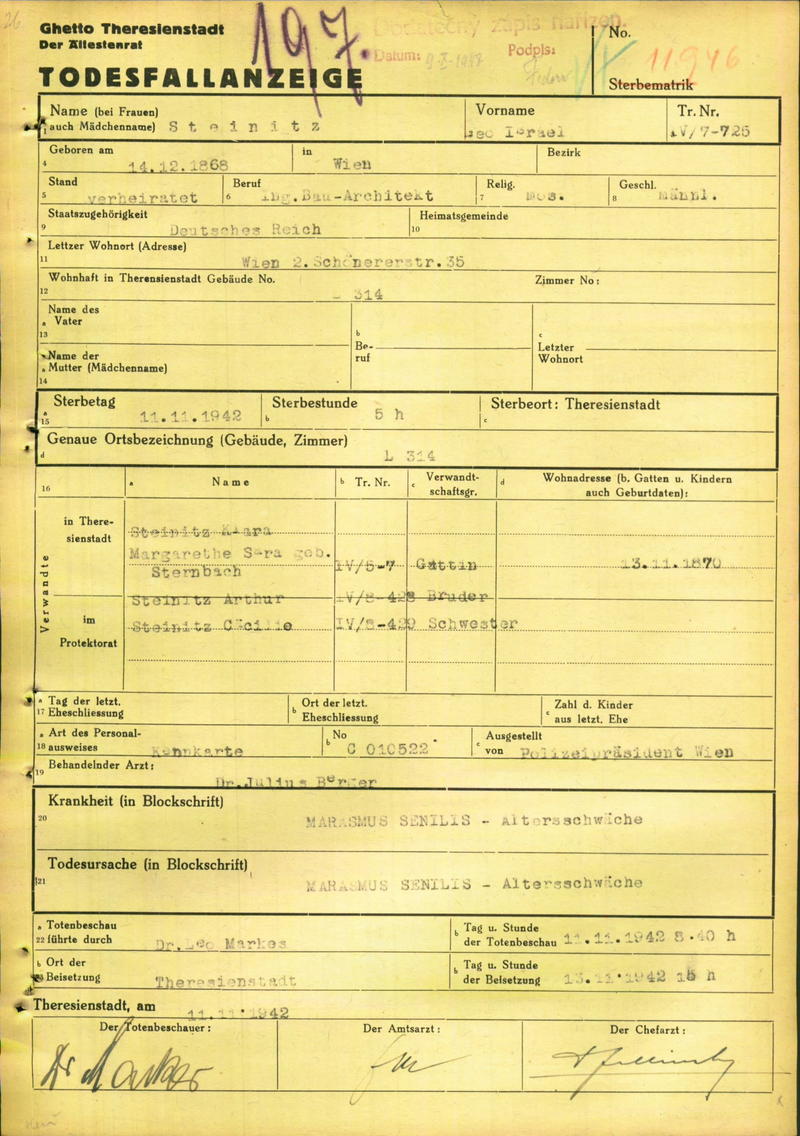 26
197.
Ghetto Theresienstadt
Der Ältestenrat
TODESFALLANZEIGE
Dodatečný zápis nařízen.
Datum:
Podpis:
No.
11946
Sterbematrik
Name (bei Frauen)
auch Mädchenname) Steinitz
Vorname
Leo Israel
Tr. Nr.
IV/7-725
Geboren am
4 14.12.1868
in
Wien
Bezirk
Stand
5 verheiratet
Beruf
6 Ing.Bau-Architekt
Relig.
7 mos.
Geschl.
8 männl.
Staatszugehörigkeit
9 Deutsches Reich
Heimatsgemeinde
10
Lettzer Wohnort (Adresse)
11 Wien 2.Schönererstr.35
Wohnhaft in Therensienstadt Gebäude No.
12 L 314
Zimmer No:
Name des
a Vater
13
b
Be-
ruf
c
Letzter
Wohnort
Name der
a Mutter (Mädchenname)
14
Sterbetag
a
15 11.11.1942
Sterbestunde
b 5 h
Sterbeort: Theresienstadt
c
Genaue Ortsbezeichnung (Gebäude, Zimmer)
d L 314
16
a Name
b Tr. Nr.
c Verwandt-
schaftsgr.
d Wohnadresse (b. Gatten u. Kindern
auch Geburtdaten):
Verwandte
in There-
sienstadt
im
Protektorat
Steinitz Klara
Margarethe Sara geb.
Sternbach IV/5-7 Gattin 13.11.1870
Steinitz Arthur IV/8-428 Bruder
Steinitz Cäcilie IV/8-429 Schwester
a Tag der letzt.
17 Eheschliessung
b Ort der letzt.
Eheschliessung
c Zahl d. Kinder
aus letzt. Ehe
a Art des Personal-
18 ausweises Kennkarte
b No
C 010522
c Ausgestellt
von Polizeipräsident Wien
Behandelnder Arzt:
19 Dr.Julius Berger
Krankheit (in Blockschrift)
20 MARASMUS SENILIS - Altersschwäche
Todesursache (in Blockschrift)
21 MARASMUS SENILIS - Altersschwäche
a Totenbeschau
22 führte durch Dr.Leo Markes
b Tag u. Stunde
der Totenbeschau 11.11.1942 8.40 h
b Ort der
Beisetzung Theresienstadt
b Tag u. Stunde
der Beisetzung 13.11.1942 15 h
Theresienstadt, am 11.11.1942
Der Totenbeschauer:
Der Amtsarzt:
Der Chefarzt:
Dr Markes